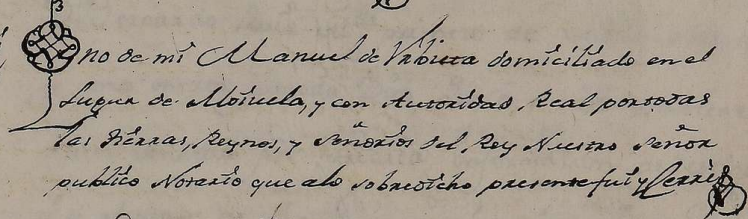 no de mi Manuel de Urbieta domiciliado en el
Lugar de Moiuela, y con Autoridad Real por todas
las tierras, Reynos, y señorios del Rey Nuestro señor
publico Notario que a lo sobredicho presente fui y Cerré